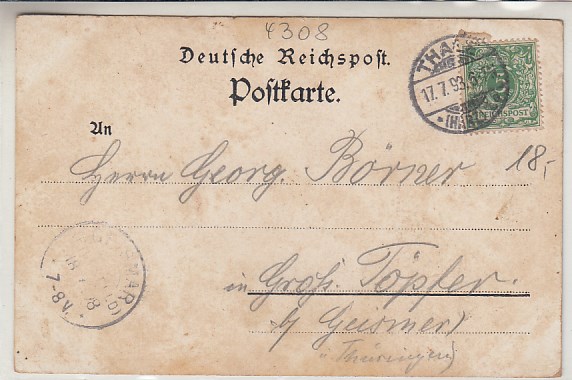 4308
Deutsche Reichspost.
Postkarte.
THA
17.7.93.
(HARZ)
REICHSPOST
An
Herrn Georg. Börner
18,-
in Groß. Töpfer
b/ Geismer)
Thüringen)
MAR
7-8N